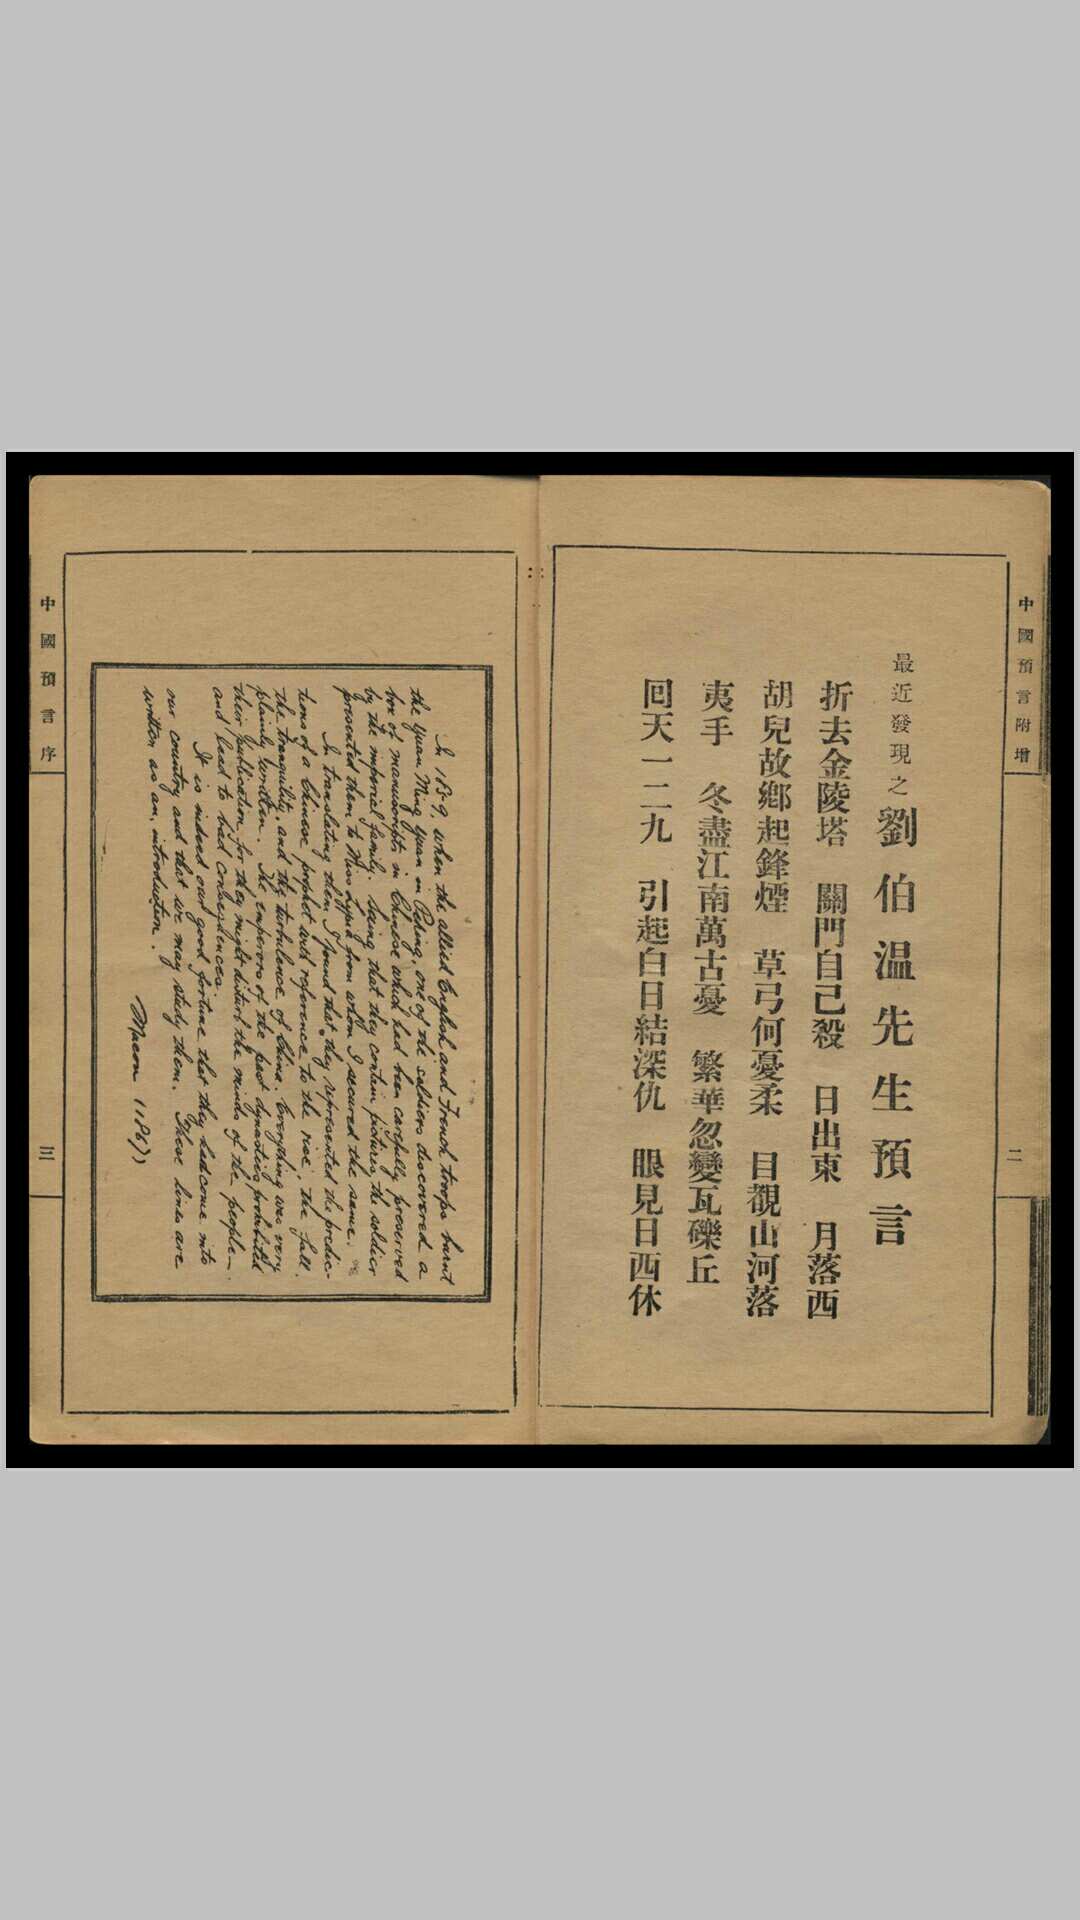 中國預言附增
二
最近發現之劉伯温先生預言
折去金陵塔　關門自己殺　日出東　月落西
胡兒故鄉起鋒煙　草弓何憂柔　目觀山河落
夷手　冬盡江南萬古憂　繁華忽變瓦礫丘
回天一二九　引起白日結深仇　眼見日西休
In 1859, when the allied English and French troops burnt
the Yuan Ming Yuan in Peking, one of the soldiers discovered a
box of manuscripts in Chinese which had been carefully preserved
by the imperial family. Seeing that they contain pictures, the soldier
presented them to Miss from whom I secured the same.
In translating them I found that they represented the predic-
tions of a Chinese prophet with reference to the rise, the fall,
the tranquility, and the turbulence of China. Everything was very
plainly written. The emperors of the past dynasties prohibited
their publication for they might disturb the minds of the people
and lead to bad consequences.
It is indeed our good fortune that they had come into
our country and that we may study them. These lines are
written as an introduction.
Macon (1186)
中國預言序
三